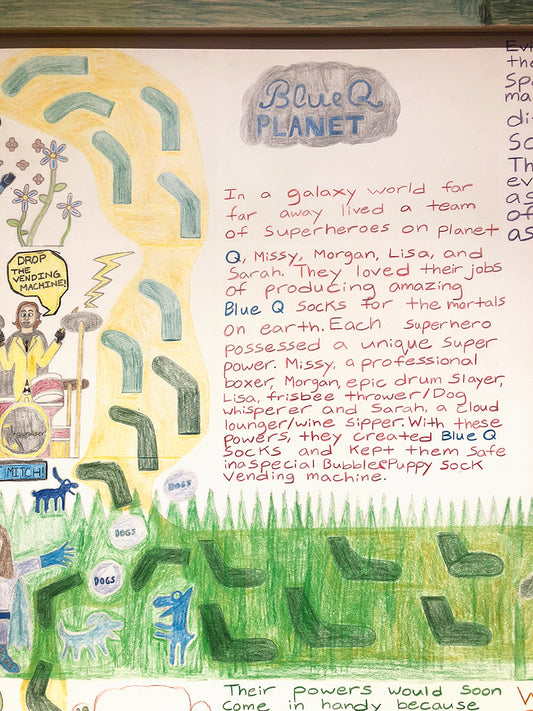 Blue Q
PLANET
In a galaxy world far
far away lived a team
of Superheroes on planet
Q, Missy, Morgan, Lisa, and
Sarah. They loved their jobs
of producing amazing
Blue Q socks for the mortals
on earth. Each superhero
possessed a unique super
power. Missy, a professional
boxer, Morgan, epic drum slayer,
Lisa, frisbee thrower/Dog
whisperer and Sarah, a cloud
lounger/wine sipper. With these
powers, they created Blue Q
Socks and kept them safe
in a special Bubble & Puppy sock
vending machine.
DROP
THE
VENDING
MACHINE!
MITCH!
DOGS
DOGS
DOGS
Their powers would soon
come in handy because